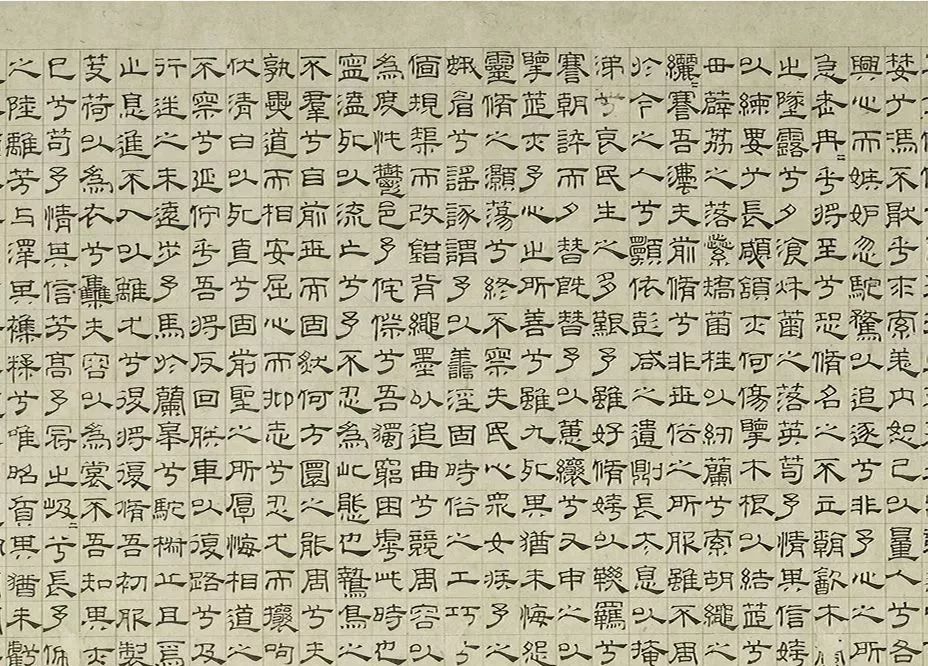 婪兮馮不猒乎求索羌內恕己以量人兮各
興心而嫉妒忽馳騖以追逐兮非予心之所
急老冉〻乎將至兮恐脩名之不立朝飲木蘭
之墜露兮夕湌秋菊之落英苟予情其信姱
以練要兮長顑頷亦何傷擥木根以結茝兮
毌薜荔之落蘂矯菌桂以紉蘭兮索胡繩之
纚〻謇吾灋夫前脩兮非世俗之所服雖不周
於今之人兮顠依彭咸之遺則長太息以掩
涕兮哀民生之多艱予雖好脩姱以鞿羈兮
謇朝誶而夕替既替予以蕙纕兮又申之以
擥茝亦予心之所善兮雖九死其猶未悔怨
靈脩之灝蕩兮終不察夫民心眾女疾予之
蛾眉兮謠諑謂予以善淫固時俗之工巧兮
偭規榘而改錯背繩墨以追曲兮競周容以
為度忳鬱邑予侘傺兮吾獨窮困虖此時也
寧溘死以流亡兮予不忍為此態也鷙鳥之
不羣兮自前世而固然何方圜之能周兮夫
孰異道而相安屈心而抑志兮忍尤而攘詬
伏清白以死直兮固前聖之所厚悔相道之
不察兮延佇乎吾將反回朕車以復路兮及
行迷之未遠步予馬於蘭皋兮馳椒丘且焉
止息進不入以離尤兮退將復脩吾初服製
芰荷以為衣兮集夫容以為裳不吾知其亦
已兮苟予情其信芳高予冠之岌〻兮長予佩
之陸離芳与澤其襍糅兮唯昭質其猶未虧